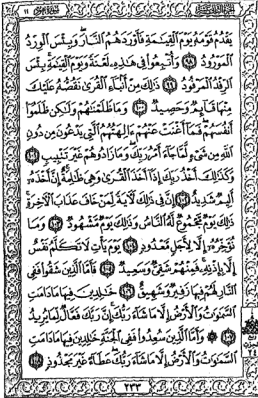 يَقْدُمُ قَوْمَهُۥ يَوْمَ ٱلْقِيَٰمَةِ فَأَوْرَدَهُمُ ٱلنَّارَ وَبِئْسَ ٱلْوِرْدُ
ٱلْمَوْرُودُ ٩٨ وَأُتْبِعُوا۟ فِى هَٰذِهِۦ لَعْنَةً وَيَوْمَ ٱلْقِيَٰمَةِ بِئْسَ
ٱلرِّفْدُ ٱلْمَرْفُودُ ٩٩ ذَٰلِكَ مِنْ أَنۢبَآءِ ٱلْقُرَىٰ نَقُصُّهُۥ عَلَيْكَ
مِنْهَا قَآئِمٌ وَحَصِيدٌ ١٠٠ وَمَا ظَلَمْنَٰهُمْ وَلَٰكِن ظَلَمُوٓا۟
أَنفُسَهُمْ فَمَآ أَغْنَتْ عَنْهُمْ ءَالِهَتُهُمُ ٱلَّتِى يَدْعُونَ مِن دُونِ
ٱللَّهِ مِن شَىْءٍ لَّمَّا جَآءَ أَمْرُ رَبِّكَ وَمَا زَادُوهُمْ غَيْرَ تَتْبِيبٍ ١٠١
وَكَذَٰلِكَ أَخْذُ رَبِّكَ إِذَآ أَخَذَ ٱلْقُرَىٰ وَهِىَ ظَٰلِمَةٌ إِنَّ أَخْذَهُۥٓ
أَلِيمٌ شَدِيدٌ ١٠٢ إِنَّ فِى ذَٰلِكَ لَءَايَةً لِّمَنْ خَافَ عَذَابَ ٱلْءَاخِرَةِ
ذَٰلِكَ يَوْمٌ مَّجْمُوعٌ لَّهُ ٱلنَّاسُ وَذَٰلِكَ يَوْمٌ مَّشْهُودٌ ١٠٣ وَمَا
نُؤَخِّرُهُۥٓ إِلَّا لِأَجَلٍ مَّعْدُودٍ ١٠٤ يَوْمَ يَأْتِ لَا تَكَلَّمُ نَفْسٌ
إِلَّا بِإِذْنِهِۦ فَمِنْهُمْ شَقِىٌّ وَسَعِيدٌ ١٠٥ فَأَمَّا ٱلَّذِينَ شَقُوا۟ فَفِى
ٱلنَّارِ لَهُمْ فِيهَا زَفِيرٌ وَشَهِيقٌ ١٠٦ خَٰلِدِينَ فِيهَا مَا دَامَتِ
ٱلسَّمَٰوَٰتُ وَٱلْأَرْضُ إِلَّا مَا شَآءَ رَبُّكَ إِنَّ رَبَّكَ فَعَّالٌ لِّمَا يُرِيدُ
١٠٧ وَأَمَّا ٱلَّذِينَ سُعِدُوا۟ فَفِى ٱلْجَنَّةِ خَٰلِدِينَ فِيهَا مَا دَامَتِ
ٱلسَّمَٰوَٰتُ وَٱلْأَرْضُ إِلَّا مَا شَآءَ رَبُّكَ عَطَآءً غَيْرَ مَجْذُوذٍ ١٠٨
٢٣٣